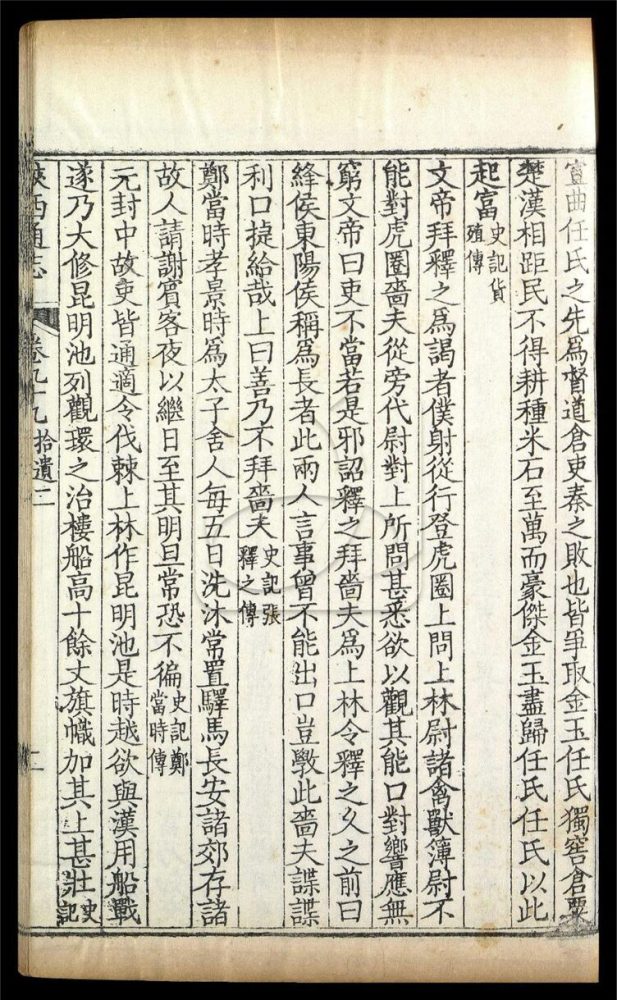 宣曲任氏之先爲督道倉吏秦之敗也皆爭取金玉任氏獨窖倉粟
楚漢相距民不得耕種米石至萬而豪傑金玉盡歸任氏任氏以此
起富史記貨殖傳
文帝拜釋之爲謁者僕射從行登虎圈上問上林尉諸禽獸簿尉不
能對虎圈嗇夫從旁代尉對上所問甚悉欲以觀其能口對響應無
窮文帝曰吏不當若是邪詔釋之拜嗇夫爲上林令釋之久之前曰
絳侯東陽侯稱爲長者此兩人言事曾不能出口豈斆此嗇夫諜諜
利口捷給哉上曰善乃不拜嗇夫史記張釋之傳
鄭當時孝景時爲太子舍人每五日洗沐常置驛馬長安諸郊存諸
故人請謝賓客夜以繼日至其明旦常恐不徧史記鄭當時傳
元封中故吏皆通適令伐棘上林作昆明池是時越欲與漢用船戰
遂乃大修昆明池列觀環之治樓船高十餘丈旗幟加其上甚壯史記
陝西通志
卷九十九拾遺二
二